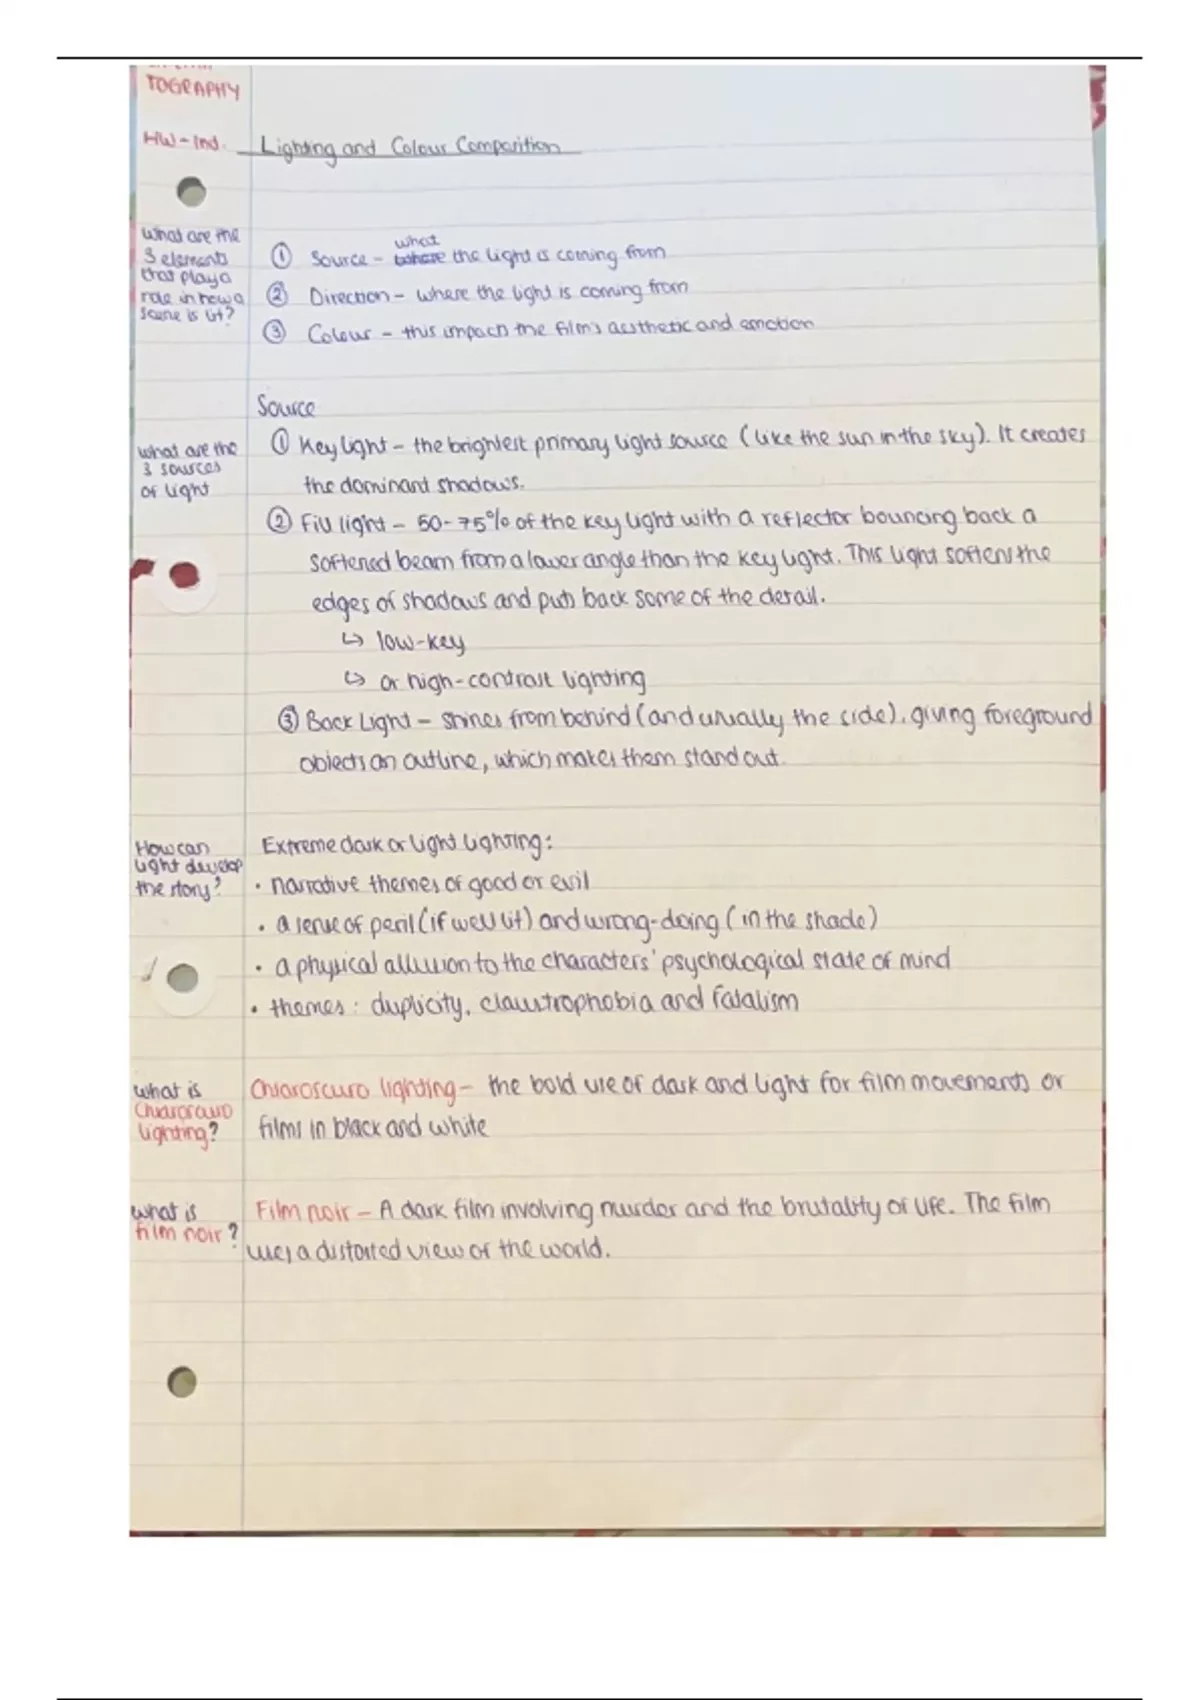 TOGRAPHY
HW - Ind.
Lighting and Colour Composition
What are the
3 elements
that play a
role in how a
scene is lit?
① Source - where what the light is coming from
② Direction - where the light is coming from
③ Colour - this impacts the film's aesthetic and emotion
Source
What are the
3 sources
of light
① Key light - the brightest primary light source (like the sun in the sky). It creates
the dominant shadows.
② Fill light - 50-75% of the key light with a reflector bouncing back a
softened beam from a lower angle than the key light. This light softens the
edges of shadows and puts back some of the detail.
↳ low-key
↳ or high-contrast lighting
③ Back Light - shines from behind (and usually the side), giving foreground
objects an outline, which makes them stand out.
How can
light develop
the story?
Extreme dark or light lighting:
• narrative themes of good or evil
• a sense of peril (if well lit) and wrong-doing (in the shade)
• a physical allusion to the characters' psychological state of mind
• themes: duplicity, claustrophobia and fatalism
What is
Chiaroscuro
lighting?
Chiaroscuro lighting - the bold use of dark and light for film movements or
films in black and white
What is
film noir?
Film noir - A dark film involving murder and the brutality of life. The film
uses a distorted view of the world.